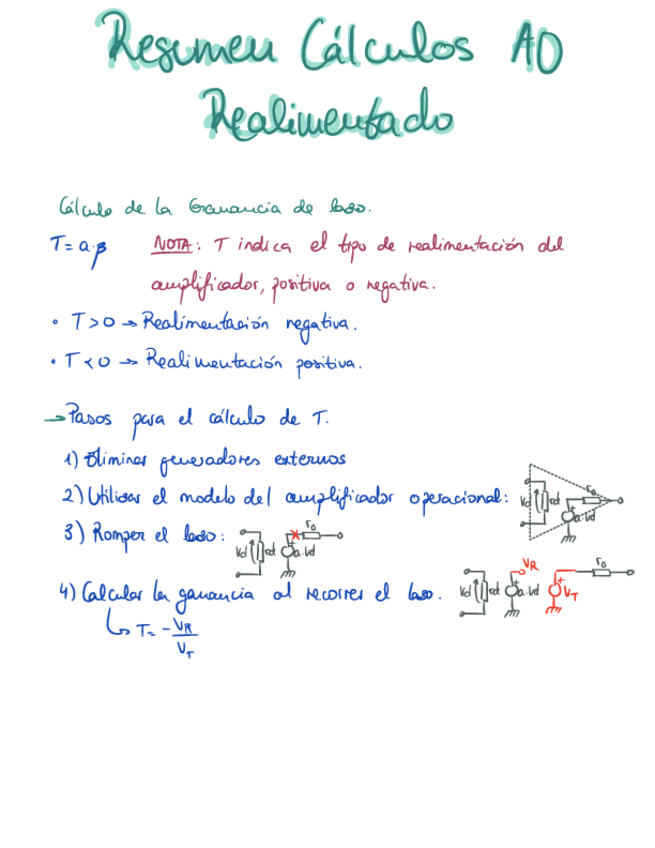 Resumen Cálculos AO
Realimentado
Cálculo de la Ganancia de lazo.
T = a·β NOTA: T indica el tipo de realimentación del
amplificador, positiva o negativa.
• T > 0 → Realimentación negativa.
• T < 0 → Realimentación positiva.
→ Pasos para el cálculo de T.
1) Eliminar generadores externos
2) Utilizar el modelo del amplificador operacional: Vd rd + a·Vd ro
3) Romper el lazo: Vd rd + a·Vd ro
4) Calcular la ganancia al recorrer el lazo. Vd rd + a·Vd VR + VT ro
↳ T = - VR / VT